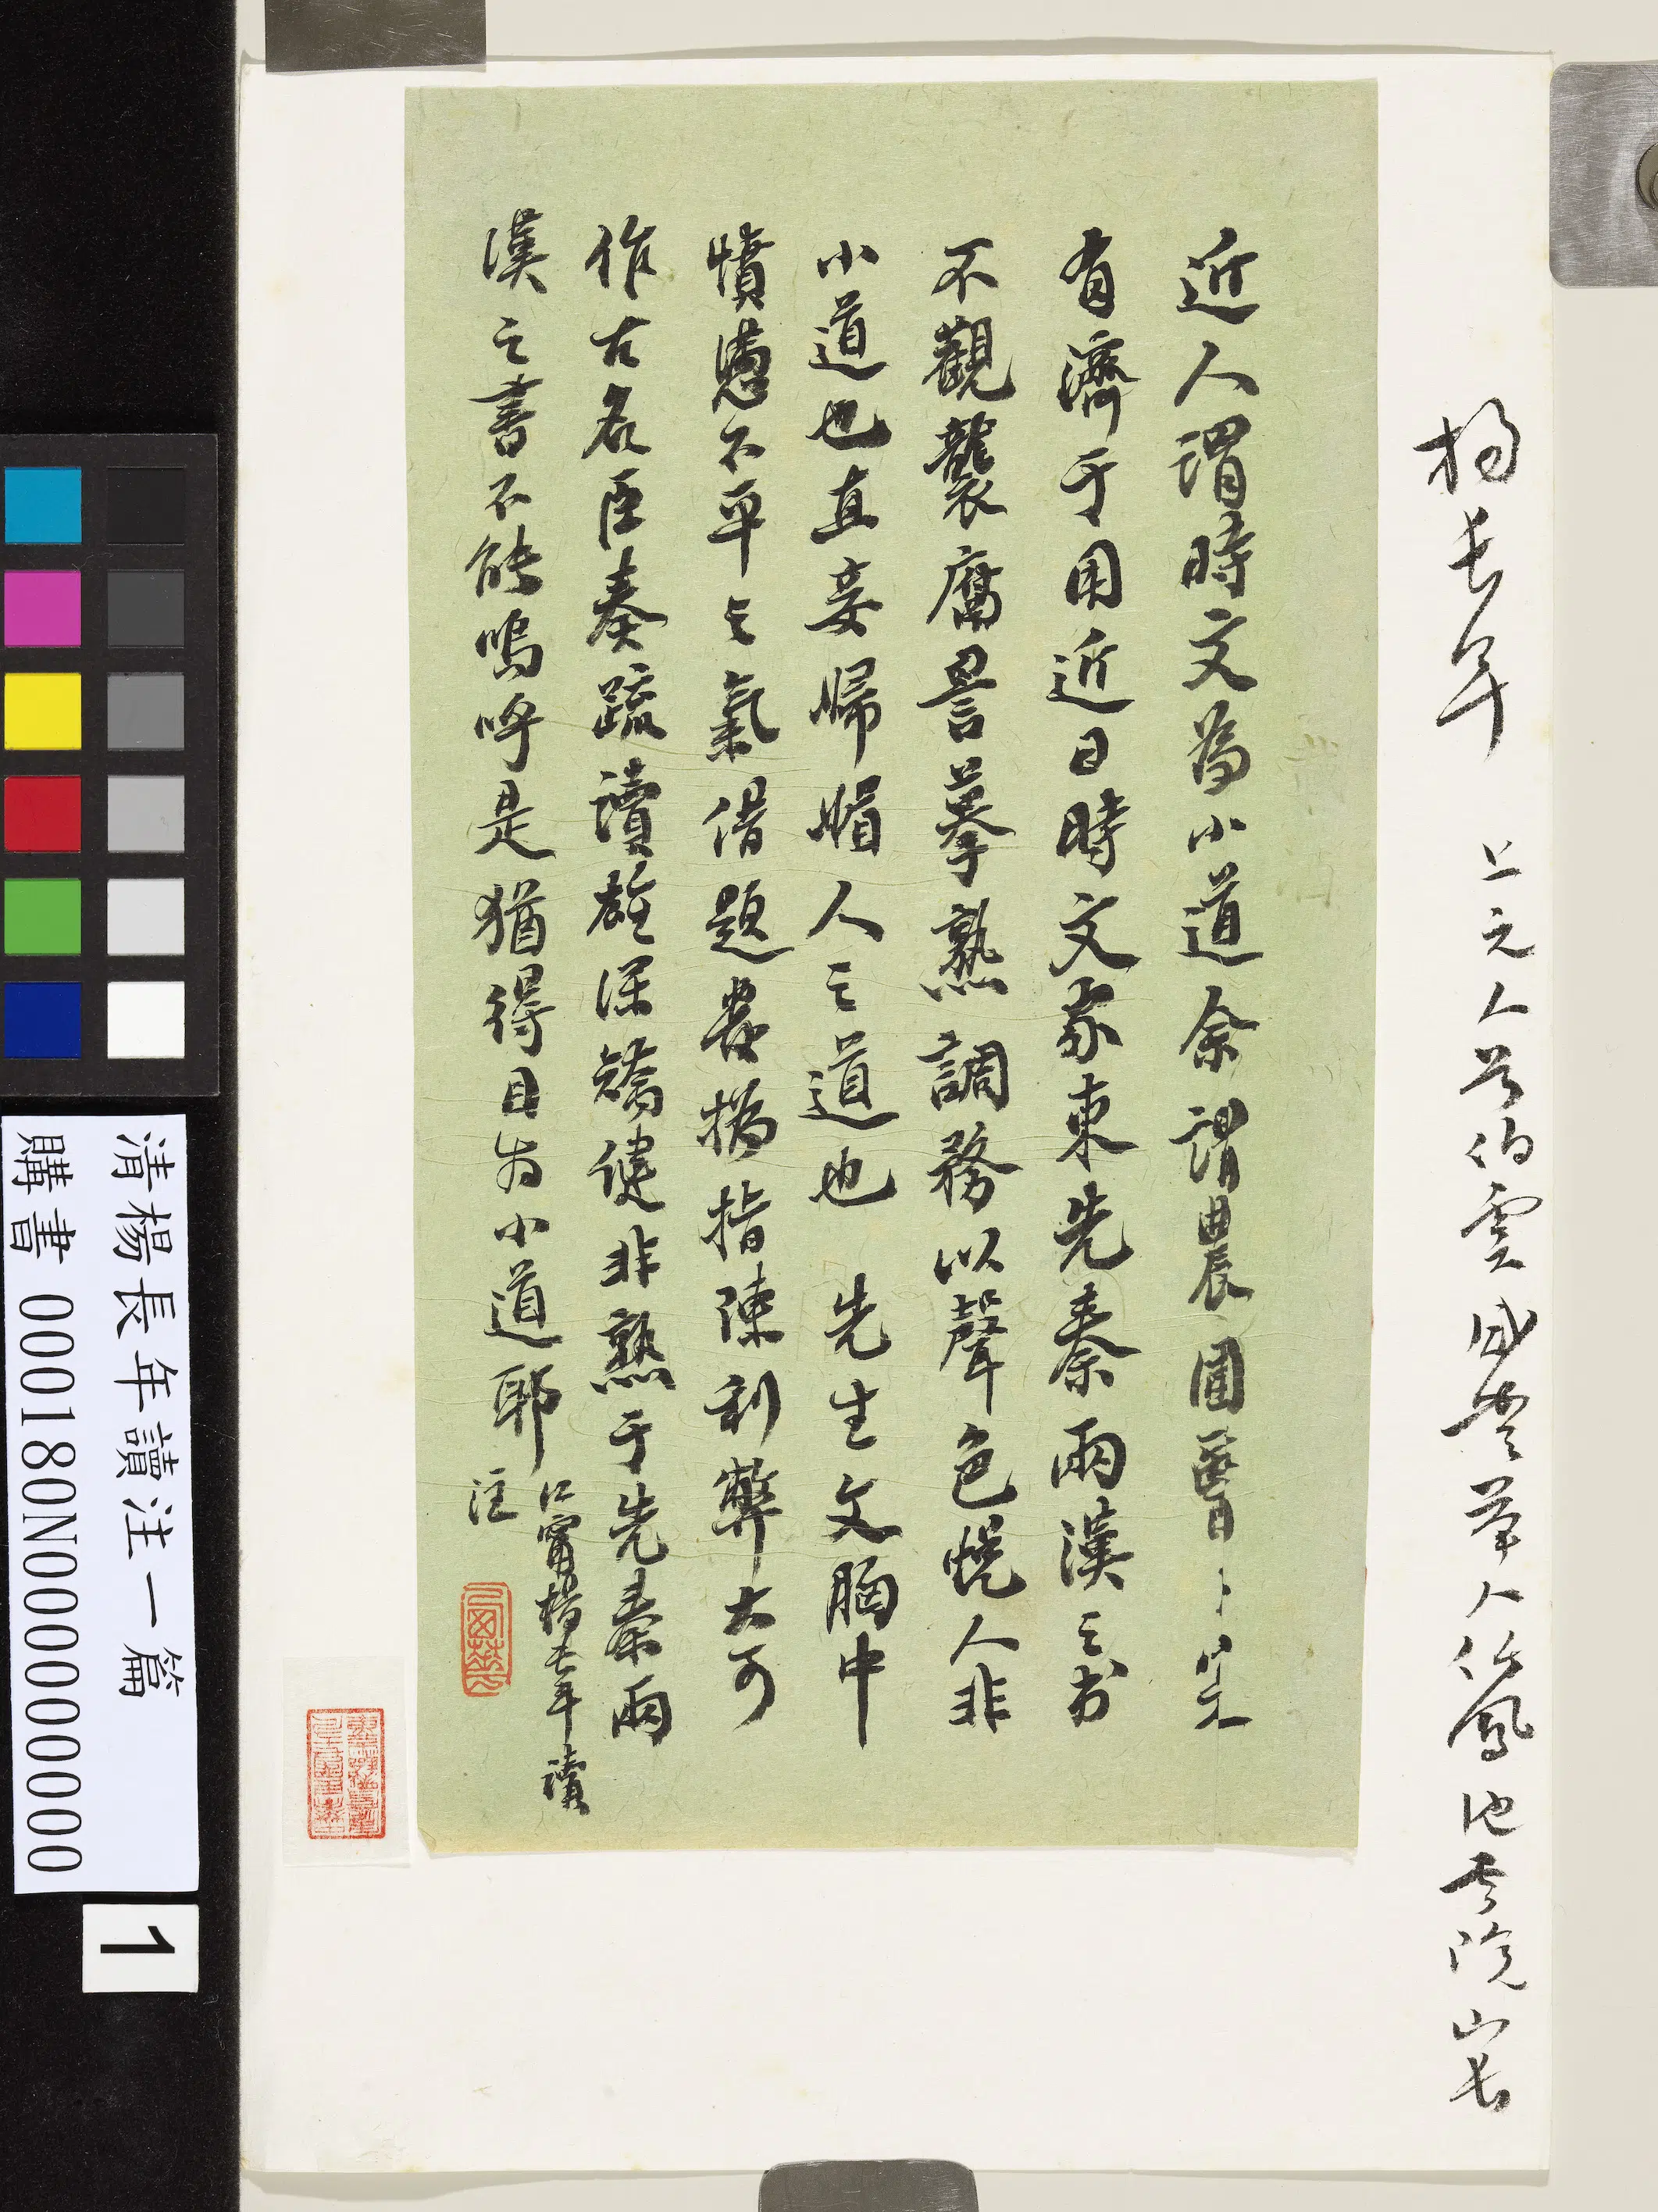 楊長年 上元人 字伯雲 咸豐舉人 鳳池書院山長
近人謂時文為小道余謂農圃醫卜豈无
有濟于用近日時文家束先秦兩漢之书
不觀襲腐詈摹熟調務以聲色悅人非
小道也直妾婦媚人之道也 先生文胸中
憤懣不平之氣借題發撝指陳利弊大可
作古名臣奏疏讀雄深矯健非熟于先秦兩
漢之書不能嗚呼是猶得目为小道耶
江甯楊長年讀
注
清楊長年讀注一篇
購書 000180N000000000
1